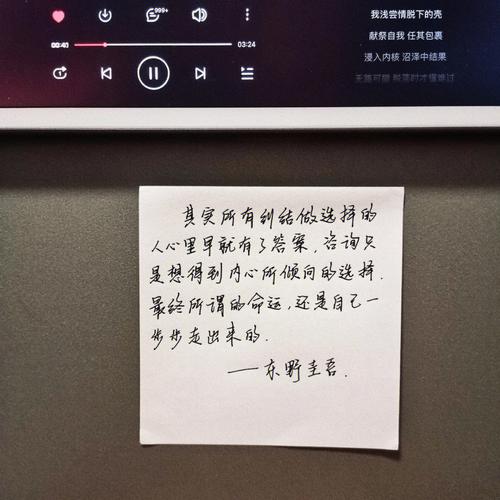 999+
00:41
03:24
我浅尝情脱下的壳
献祭自我 任其包裹
浸入内核 沼泽中结果
其实所有纠结做选择的
人心里早就有了答案,咨询只
是想得到内心所倾向的选择.
最终所谓的命运,还是自己一
步步走出来的.
——东野圭吾.